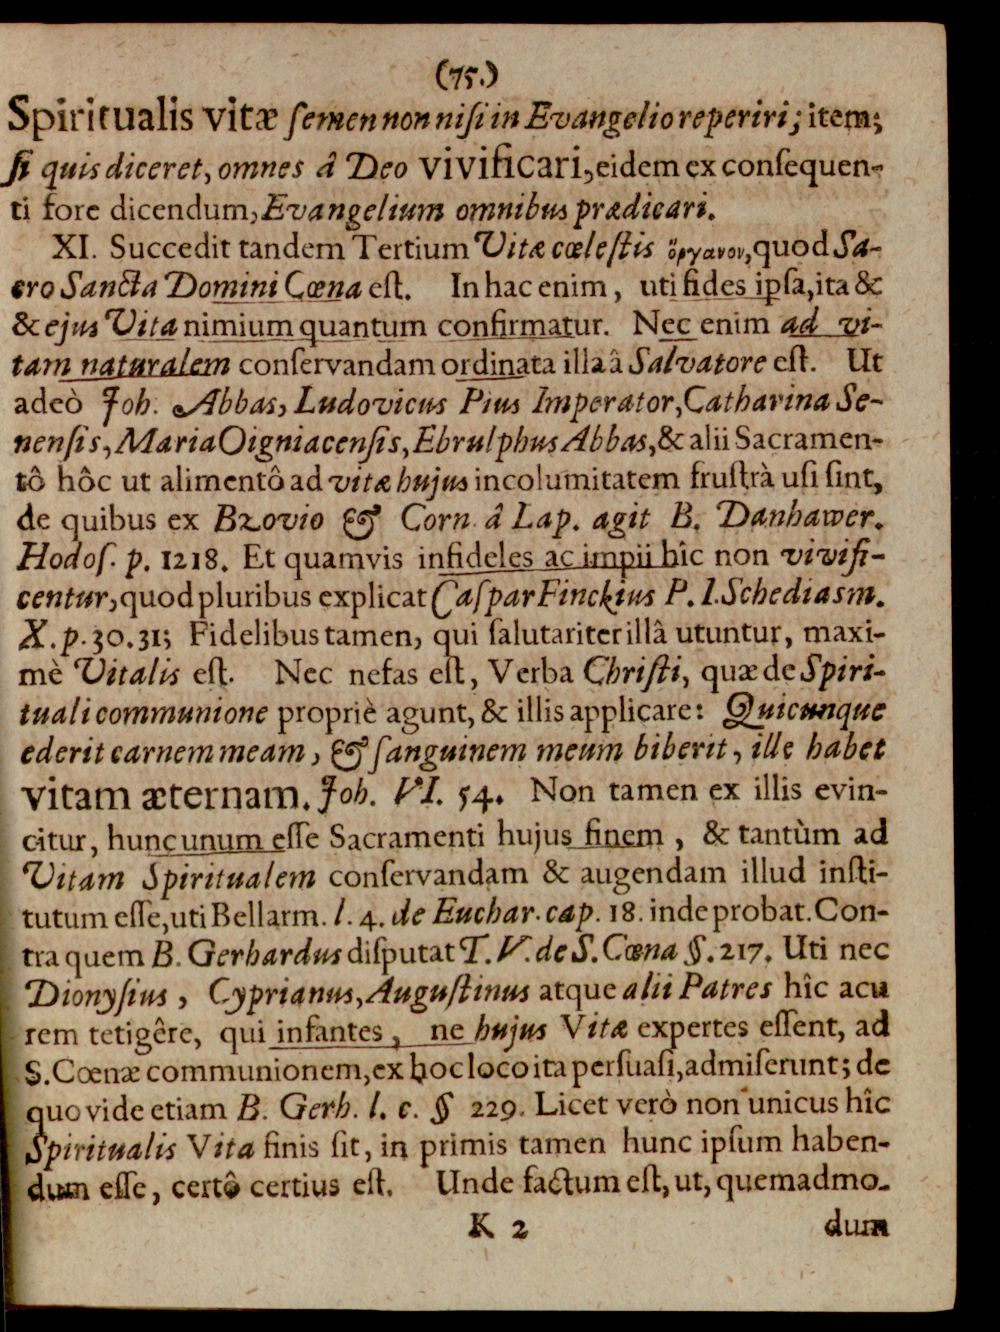 (75.)
Spiritualis vitæ ſemen non niſi in Evangelio reperiri; item;
ſi quis diceret, omnes â Deo vivificari, eidem ex conſequen-
ti fore dicendum, Evangelium omnibus prædicari.
XI. Succedit tandem Tertium Vitæ cœleſtis ὄργανον, quod Sa-
cro Sancta Domini Cœna eſt. In hac enim, uti fides ipſa, ita &
& ejus Vita nimium quantum confirmatur. Nec enim ad vi-
tam naturalem conſervandam ordinata illa â Salvatore eſt. Ut
adeò Joh. Abbas, Ludovicus Pius Imperator, Catharina Se-
nenſis, Maria Oigniacenſis, Ebrulphus Abbas, & alii Sacramen-
tô hôc ut alimentô ad vitæ hujus incolumitatem fruſtrà uſi ſint,
de quibus ex Bzovio & Corn. â Lap. agit B. Danhawer.
Hodoſ. p. 1218. Et quamvis infideles ac impii hîc non vivifi-
centur, quod pluribus explicat Caſpar Finckius P. I. Schediasm.
X. p. 30. 31; Fidelibus tamen, qui ſalutariter illâ utuntur, maxi-
mè Vitalis eſt. Nec nefas eſt, Verba Chriſti, quæ de Spiri-
tuali communione propriè agunt, & illis applicare: Quicunque
ederit carnem meam, & ſanguinem meum biberit, ille habet
vitam æternam. Joh. VI. 54. Non tamen ex illis evin-
citur, hunc unum eſſe Sacramenti hujus finem, & tantùm ad
Vitam Spiritualem conſervandam & augendam illud inſti-
tutum eſſe, uti Bellarm. l. 4. de Euchar. cap. 18. inde probat. Con-
tra quem B. Gerhardus diſputat T. V. de S. Cœna §. 217. Uti nec
Dionyſius, Cyprianus, Auguſtinus atque alii Patres hîc acu
rem tetigêre, qui infantes, ne hujus Vitæ expertes eſſent, ad
S. Cœnæ communionem, ex hoc loco ita perſuaſi, admiſerunt; de
quo vide etiam B. Gerh. l. c. § 229. Licet verò non unicus hîc
Spiritualis Vita finis ſit, in primis tamen hunc ipſum haben-
dum eſſe, certô certius eſt. Unde factum eſt, ut, quemadmo-
K 2 dum